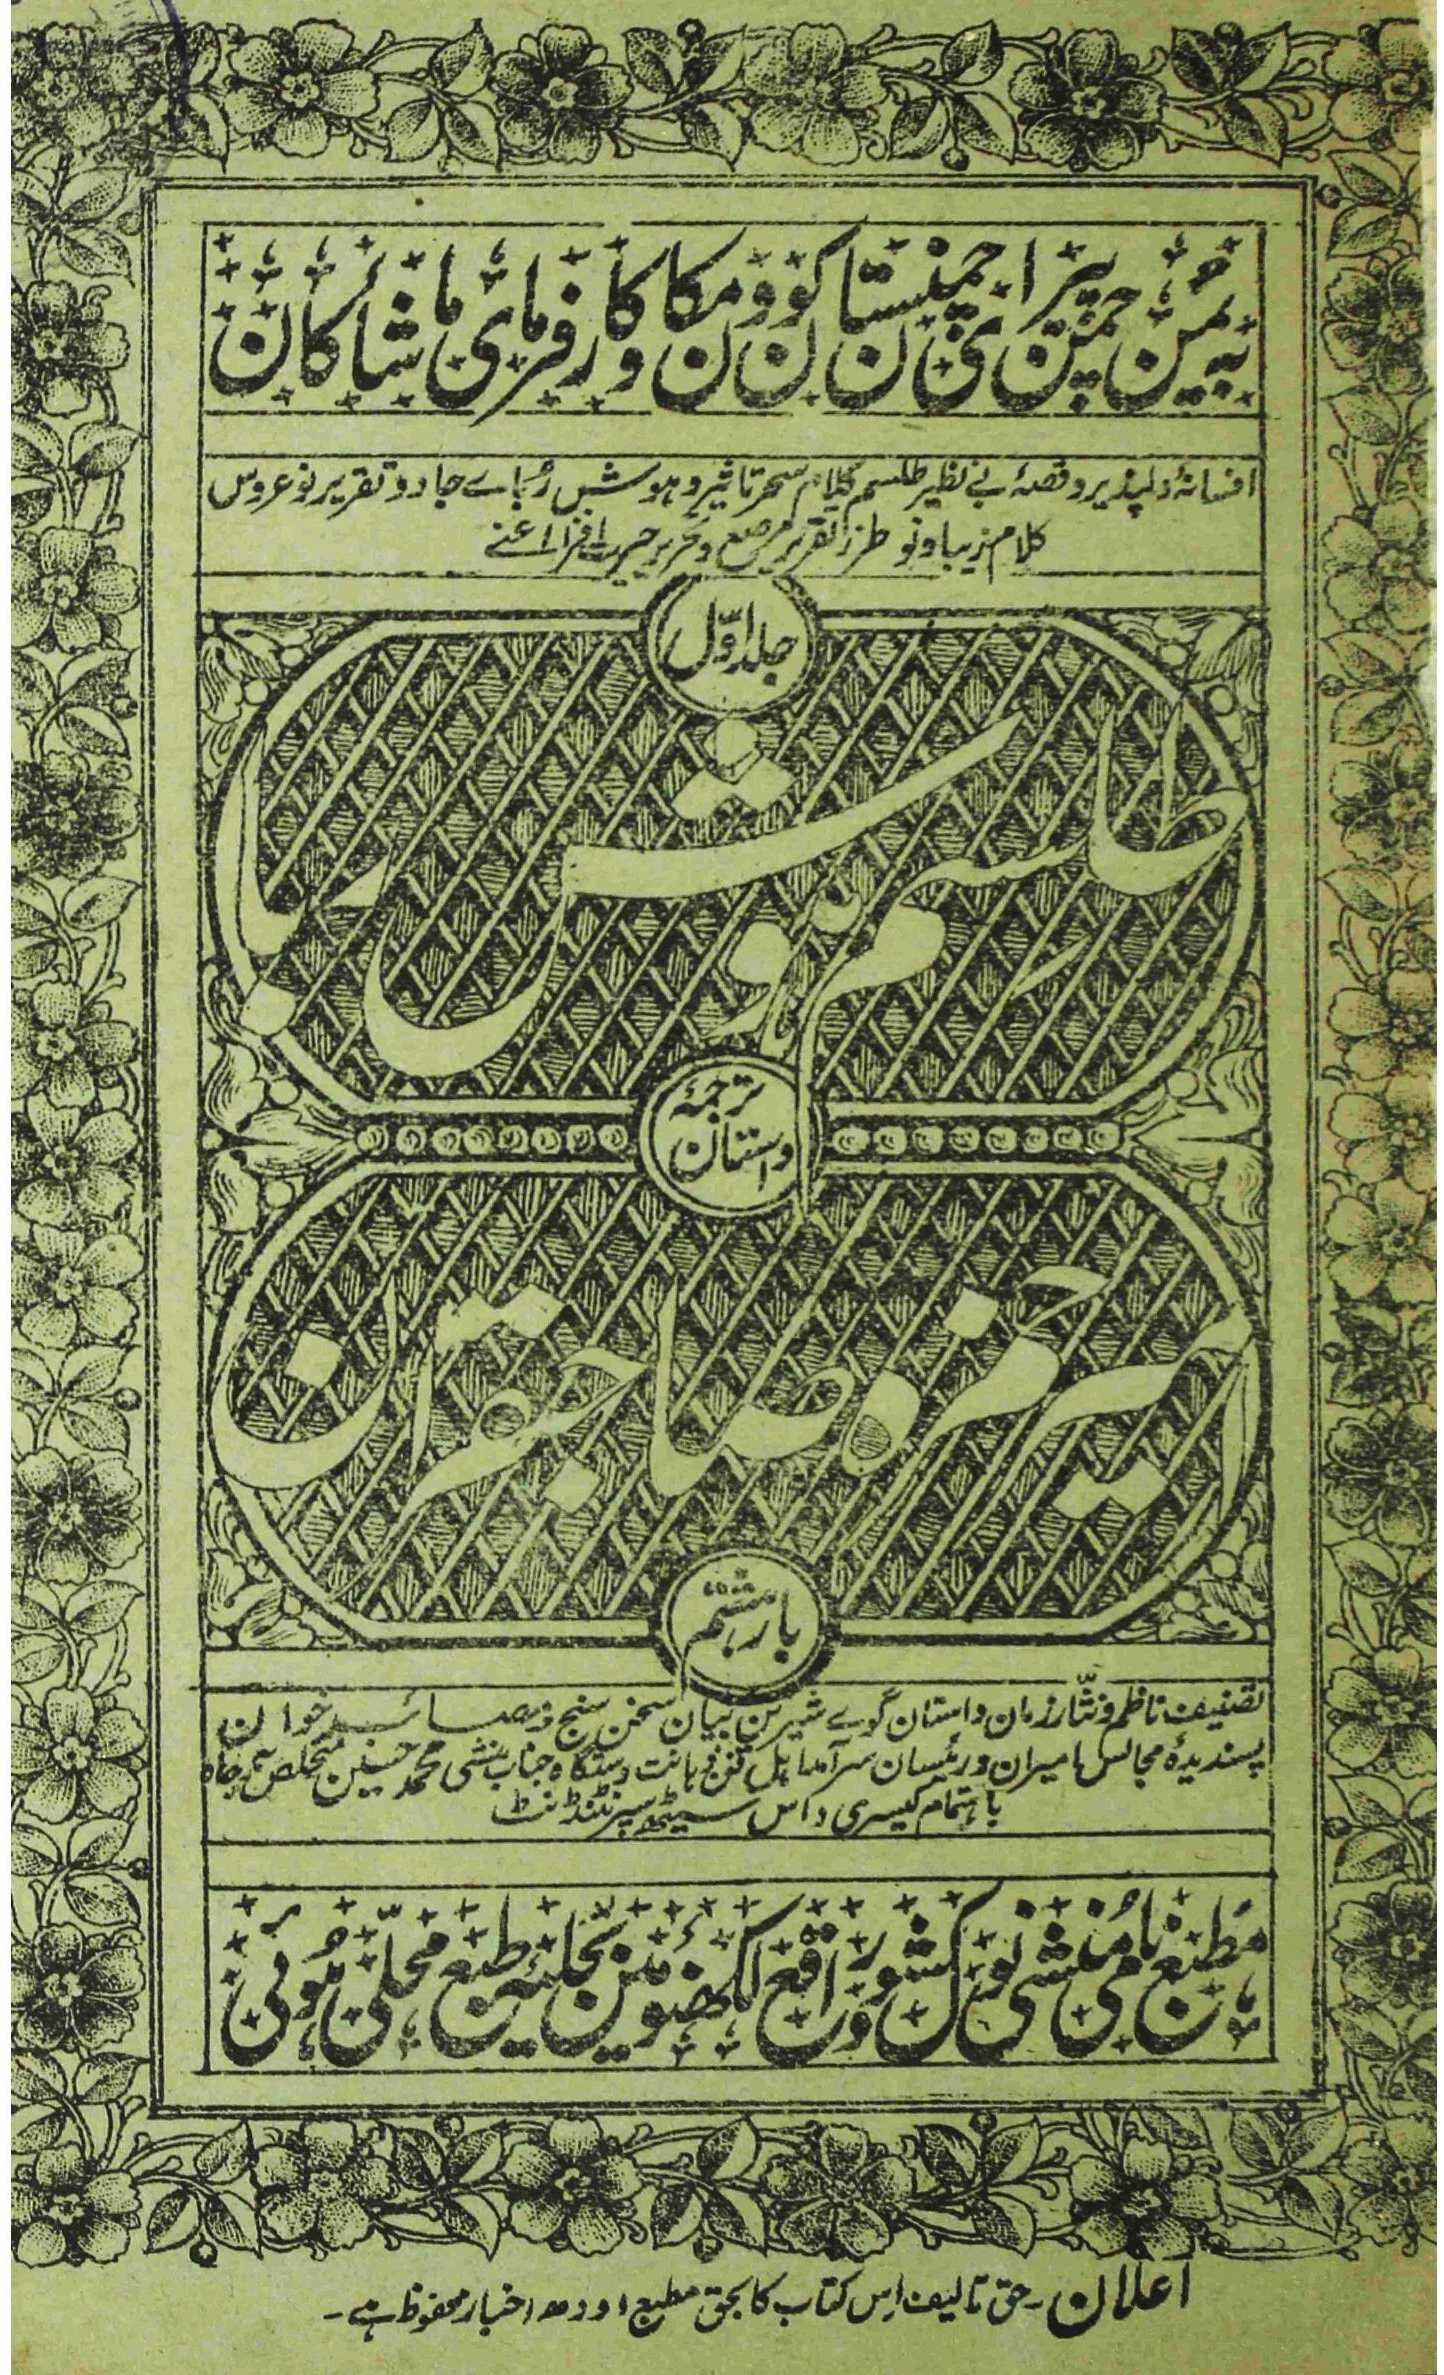 بہ یمن چمن پیرای چمنستان کون و مکان و کارفرمای ما شا کان
افسانۂ دلپذیر و قصۂ بے نظیر طلسم کلام سحر تاثیر و ہوش رباے جادو تقریر نوعروس
کلام زیبا و نو طرز تقریر مرصع و تحریر حیرت افزا اعنے
جلد اوّل
طلسم ہوش ربا
ترجمۂ
داستان
امیر حمزہ صاحبقران
بار ہشتم
تصنیف ناظم و نثّار زمان داستان گوے شیرین بیان سخن سنج
پسندیدۂ مجالس امیران و رئیسان سرآمد اہل فن ذہانت دستگاہ جناب منشی محمد حسین متخلص بہ جاہ
باہتمام کیسری داس سیٹھ سپرنٹنڈنٹ
مطبع نامی منشی نول کشور واقع لکھنؤ مین بحلیۂ طبع محلّی ہوئی
اعلان ۔ حق تالیف اِس کتاب کا بحق مطبع اودھ اخبار محفوظ ہے ۔